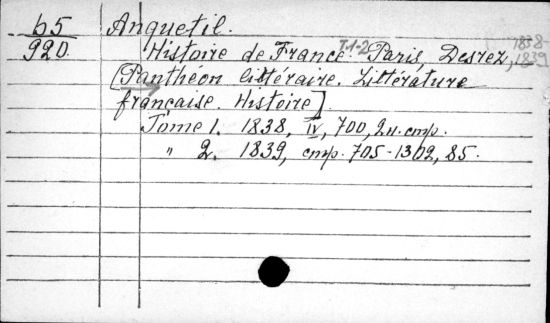 b5 Anquetil.
920. Histoire de France. T.1-2. Paris, Desrez, 1838-1839
[Panthéon littéraire. Littérature
française. Histoire].
Tome 1. 1838, IV, 700, 2 н. стр.
" 2. 1839, стр. 705-1302, 85.